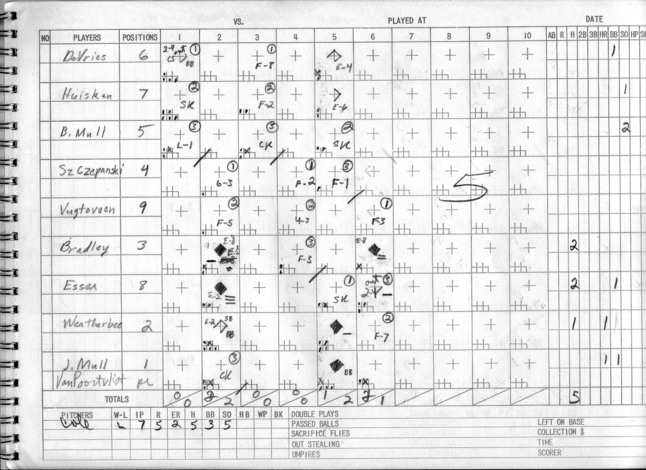 VS. PLAYED AT DATE
NO PLAYERS POSITIONS 1 2 3 4 5 6 7 8 9 10 AB R H 2B 3B HR BB SO HP
DeVries 6 CS BB 1 F-8 1 E-4 1
Huisken 7 SK 2 F-2 2 E-6 1
B. Mull 5 L-1 3 CK 3 SK 2 2
Szczepanski 4 6-3 1 F-2 1 F-1 3 5
Vugteveen 9 F-5 2 4-3 2 F3 1
Bradley 3 E-8 F-3 3 E-8 2
Essen 8 E-2 SK 1 out 3 2 1
Weatherbee 2 E-2 SB BB F-7 2 1 1
J. Mull 1 CK 3 BB 1 1
VanPoortvliet PR
TOTALS 0 0 2 2 0 0 0 0 1 2 2 1 5
PITCHERS W-L IP R ER H BB SO HB WP BK DOUBLE PLAYS
Cole L 7 5 2 5 3 5 PASSED BALLS LEFT ON BASE
SACRIFICE FLIES COLLECTION $
OUT STEALING TIME
UMPIRES SCORER